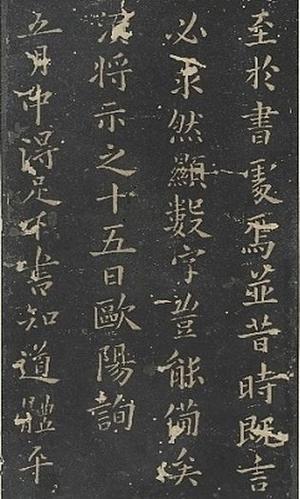 至於書焉並昔時既言
必然顯數字豈能備矣
將示之十五日歐陽詢
五月中得足下書知道體平